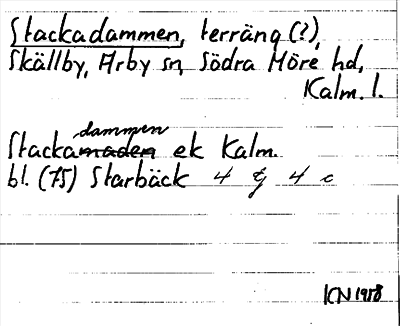 Stackadammen, terräng (?),
Skällby, Arby sn, Södra Möre hd,
Kalm. l.
dammen
Stackamaden ek Kalm.
bl. (75) Starbäck 4 g 4 c
KN 1958